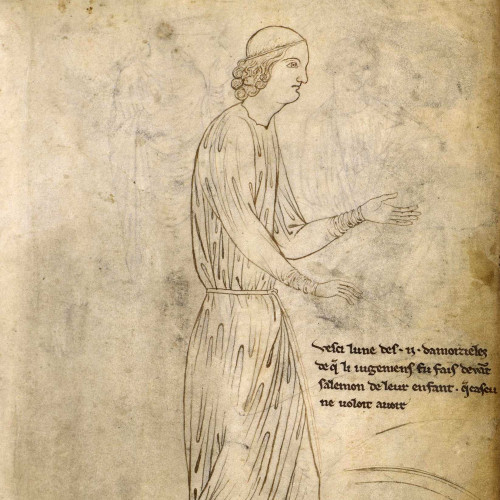 vesci lune des · ii · damoizieles
de q̃ li iugemens fu fais devãt
salemon de leur enfant · q̃ cascu
ne voloit avoir